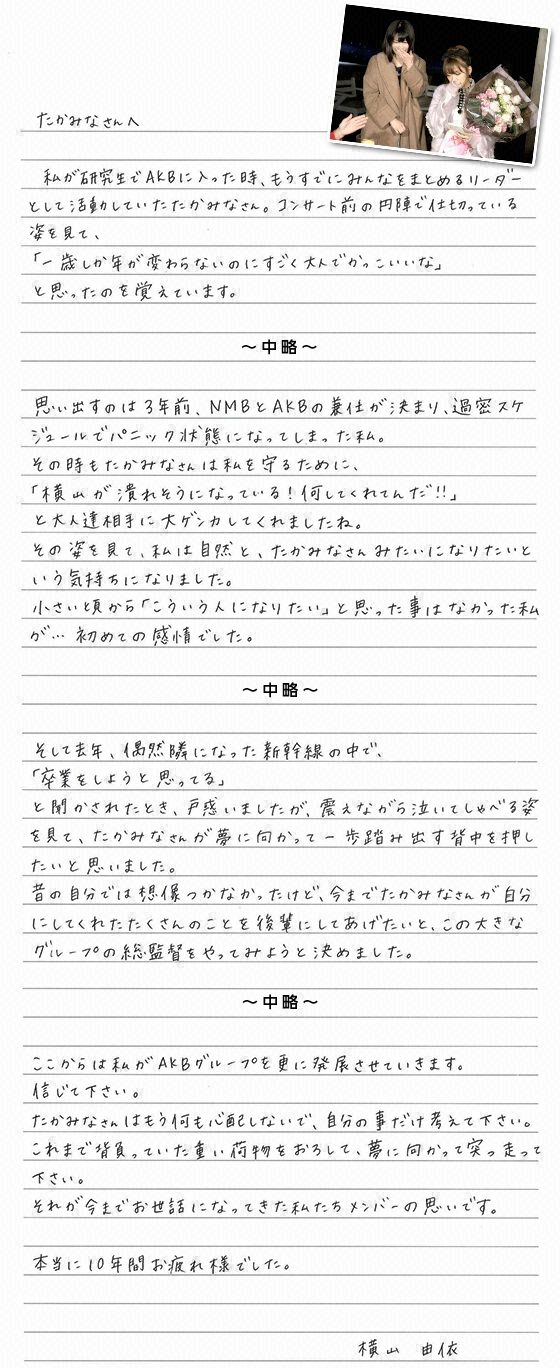 たかみなさんへ
私が研究生でAKBに入った時、もうすでにみんなをまとめるリーダー
として活動していたたかみなさん。コンサート前の円陣で仕切っている
姿を見て、
「一歳しか年が変わらないのにすごく大人でかっこいいな」
と思ったのを覚えています。
～中略～
思い出すのは3年前、NMBとAKBの兼任が決まり、過密スケ
ジュールでパニック状態になってしまった私。
その時もたかみなさんは私を守るために、
「横山が潰れそうになっている！何してくれてんだ!!」
と大人達相手に大ゲンカしてくれましたね。
その姿を見て、私は自然と、たかみなさんみたいになりたいと
いう気持ちになりました。
小さい頃から「こういう人になりたい」と思った事はなかった私
が…初めての感情でした。
～中略～
そして去年、偶然隣になった新幹線の中で、
「卒業をしようと思ってる」
と聞かされたとき、戸惑いましたが、震えながら泣いてしゃべる姿
を見て、たかみなさんが夢に向かって一歩踏み出す背中を押し
たいと思いました。
昔の自分では想像つかなかったけど、今までたかみなさんが自分
にしてくれたたくさんのことを後輩にしてあげたいと、この大きな
グループの総監督をやってみようと決めました。
～中略～
ここからは私がAKBグループを更に発展させていきます。
信じて下さい。
たかみなさんはもう何も心配しないで、自分の事だけ考えて下さい。
これまで背負っていた重い荷物をおろして、夢に向かって突っ走って
下さい。
それが今までお世話になってきた私たちメンバーの思いです。
本当に10年間お疲れ様でした。
横山 由依